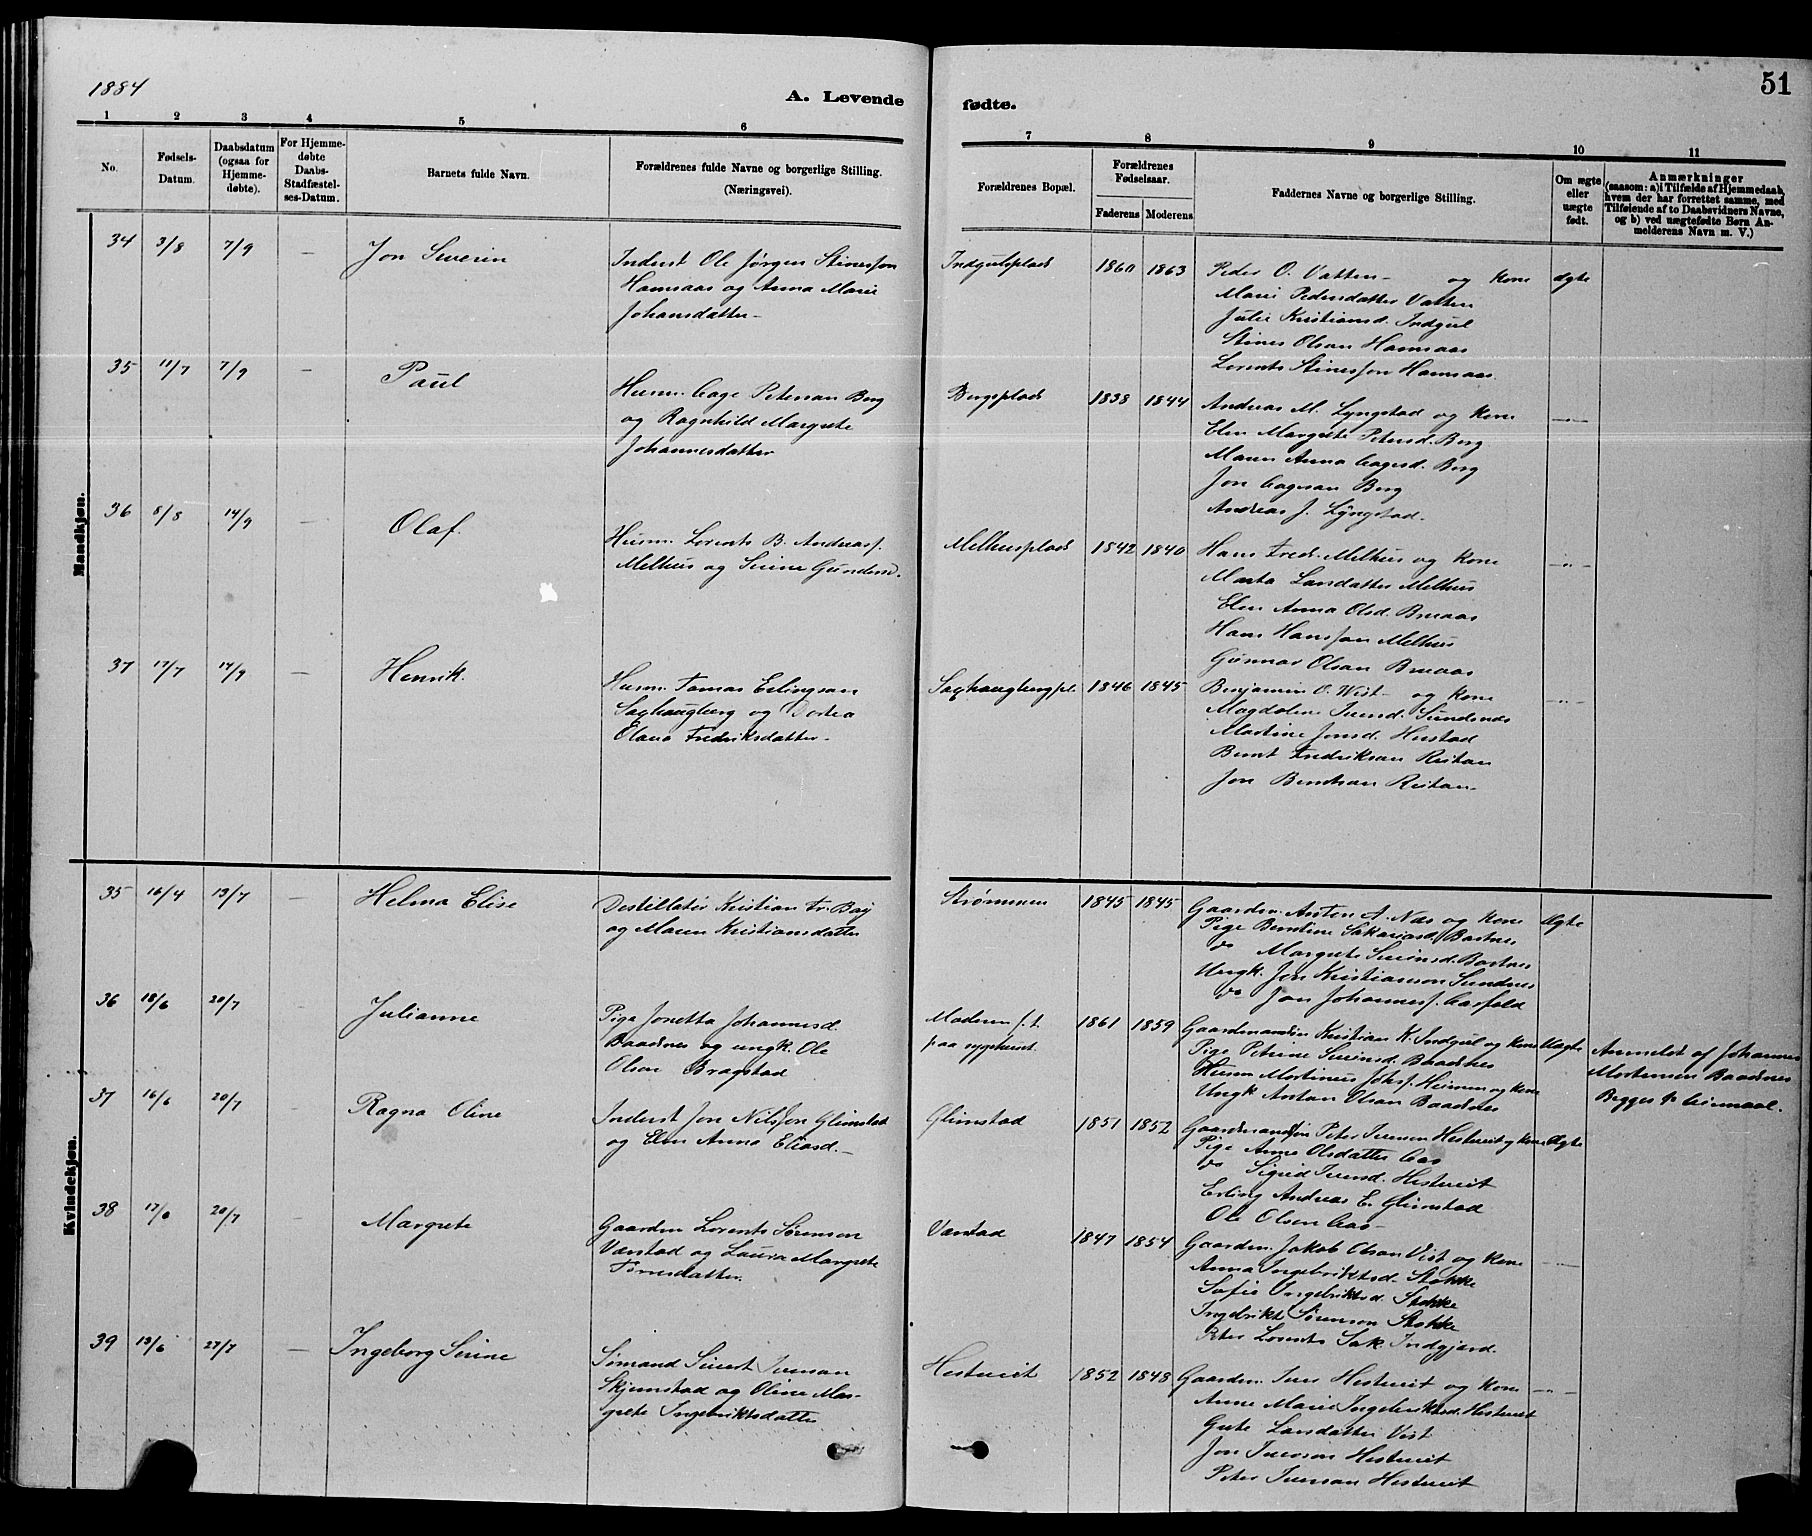 1884
A. Levende
fødte.
51
1
2
3
4
5
6
7
8
9
10
11
No.
Fødsels-
Datum.
Daabsdatum
(ogsaa for
Hjemme-
døbte).
For Hjemme-
døbte
Daabs-
Stadfæstel-
ses-Datum.
Barnets fulde Navn.
Forældrenes fulde Navne og borgerlige Stilling.
(Næringsvei).
Forældrenes Bopæl.
Forældrenes
Fødselsaar.
Faderens
Moderens
Faddernes Navne og borgerlige Stilling.
Om ægte
eller
uægte
født.
Anmærkninger
(saasom: a) i Tilfælde af Hjemmedaab,
hvem der har forrettet samme, med
Tilføiende af to Daabsvidners Navne,
og b) ved uægtefødte Børn An-
melderens Navn m. V.)
Mandkjøn.
34 3/8 7/9 — Jon Severin
Inderst Ole Jørgen Stinesson
Hamsaas og Anna Marie
Johansdatter -
Indgulsplads 1860 1863
Peder O. Vatten - og Kone ægte
Marie Pedersdatter Vatten
Julie Kristiansd. Indgul
Stines Olsen Hamsaas
Lorents Stinesson Hamsaas.
35 11/7 7/9 — Paul
Husm. Aage Petersen Berg
og Ragnhild Margrete
Johannesdatter
Bergsplads 1838 1844
Andreas M. Lyngstad og Kone —"—
Elen Margrete Petersd. Berg
Maren Anna Aagesd. Berg
Jon Aagesen Berg
Andreas J. Lyngstad.
36 8/8 14/9 — Olaf.
Husm. Lorents B. Andreass.
Melhus og Serine Gundersd.
Melhusplads 1842 1840
Hans Fred. Melhus og Kone —"—
Marta Larsdatter Melhus
Elen Anna Olsd. Bruaas
Hans Hansson Melhus
Gunnar Olsen Bruaas
37 17/7 14/9 — Henrik.
Husm. Tomas Erlingsen
Saxhaugberg og Dortea
Olava Fredriksdatter -
Saxhaugbergpl. 1846 1845
Benjamin O. Vist - og Kone —"—
Magdalene Iversd. Sundsnes
Martine Jonsd. Hustad
Bernt Fredriksen Ristan
Jon Berntsen Ristan.
Kvindekjøn.
35 16/4 13/7 — Helma Elise
Destillatør Kristian Fr. Boy
og Maren Kristiansdatter
Strømmen 1845 1845
Gaardm. Anton A. Næs og Kone Ægte
Pige Berntine Sakariasd. Bartnes
do Margrete Sivertsd. Bartnes
Ungk. Jon Kristiansen Sundnes
do Jon Johanness. Aasfald
36 18/6 20/7 Julianne
Pige Jonetta Johannesd.
Baadnes og ungk. Ole
Olsen Bragstad
Moderen f. t.
paa sygehuset.
1861 1859
Gaardmanden Kristian K. Indgul og Kone Uægte
Pige Petrine Sivertsd. Baadnes
Husm Martinus Johs. Heimen og Kone
Ungk Antan Olsen Baadnes
Anmeldt af Johannes
Mortensen Baadnes
Begges 1ste Leiermaal.
37 16/6 20/7 Ragna Oline
Inderst Jon Nilsson Glimstad
og Elen Anna Eliasd. -
Glimstad 1851 1852
Gaardmanden Peter Iversen Hestveit og Kone Ægte
Pige Anna Olsdatter Aas
do Sigrid Iversd. Hestveit
Erling Andreas E. Glimstad
Ole Olsen Aas -
38 17/6 20/7 Margrete
Gaardm Lorents Sørensen
Vanstad og Laura Margrete
Tomesdatter.
Vanstad 1847 1854
Gaardm. Jakob Olsen Vist og Kone —"—
Anna Ingebriktsd. Stokke
Sofie Ingebriktsd. Stokke
Ingebrikt Sørenson Stokke
Peter Lorents Sak. Indgjerd.
39 13/6 27/7 — Ingeborg Serine
Sømand Sivert Iversen
Skjemstad og Oline Mar-
grete Ingebriktsdatter
Hestveit 1852 1848
Gaardm. Iver Hestveit og Kone —"—
Anne Marie Ingebriktsd. Hestveit
Gurte Larsdatter Vist
Jon Iverson Hestveit
Peter Iversen Hestveit